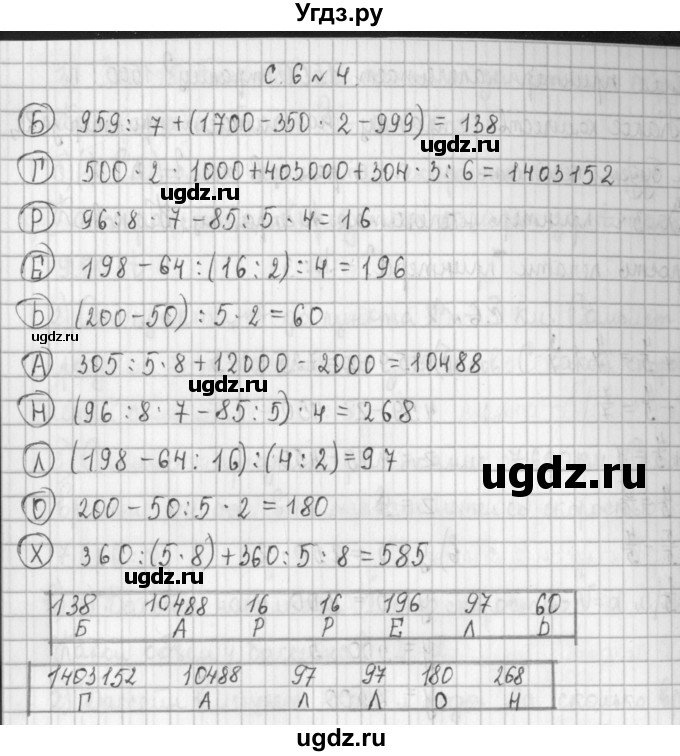 Угдз.ру
С. 6 № 4.
Б 959 : 7 + (1700 - 350 · 2 - 999) = 138
Г 500 · 2 · 1000 + 403000 + 304 · 3 : 6 = 1403152
ugdz.ru ugdz.ru
Р 96 : 8 · 7 - 85 : 5 · 4 = 16
Е 198 - 64 : (16 : 2) : 4 = 196
Ь (200 - 50) : 5 · 2 = 60
ugdz.ru ugdz.ru
А 305 : 5 · 8 + 12000 - 2000 = 10488
ugdz.ru
Н (96 : 8 · 7 - 85 : 5) · 4 = 268
Л (198 - 64 : 16) : (4 : 2) = 97
ugdz.ru
О 200 - 50 : 5 · 2 = 180
Х 360 : (5 · 8) + 360 : 5 : 8 = 585
ugdz.ru
138 10488 16 16 196 97 60
Б А Р Р Е Л Ь
1403152 10488 97 97 180 268
Г А Л Л О Н
ugdz.ru ugdz.ru